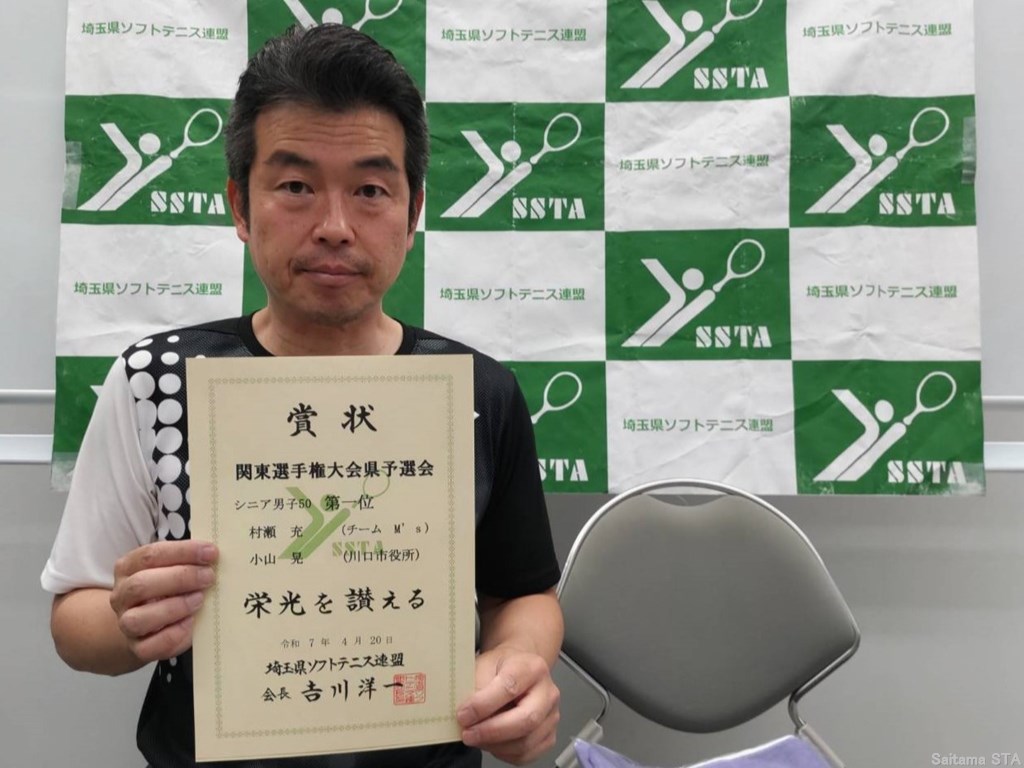 埼玉県ソフトテニス連盟
埼玉県ソフトテニス連盟
埼玉県ソフトテニス連盟
SSTA
SSTA
SSTA
埼玉県ソフトテニス連盟
SSTA
埼玉県ソフトテニス連盟
埼玉県ソフトテニス連盟
SSTA
埼玉県ソフトテニス連盟
STA
埼玉県ソフトテニス連盟
SSTA
賞状
関東選手権大会県予選会
シニア男子50 第一位
村瀬 充 (チーム M's)
小山 晃 (川口市役所)
SSTA
栄光を讃える
令和 7 年 4 月 20 日
埼玉県ソフトテニス連盟
会長 吉川洋一
Saitama STA